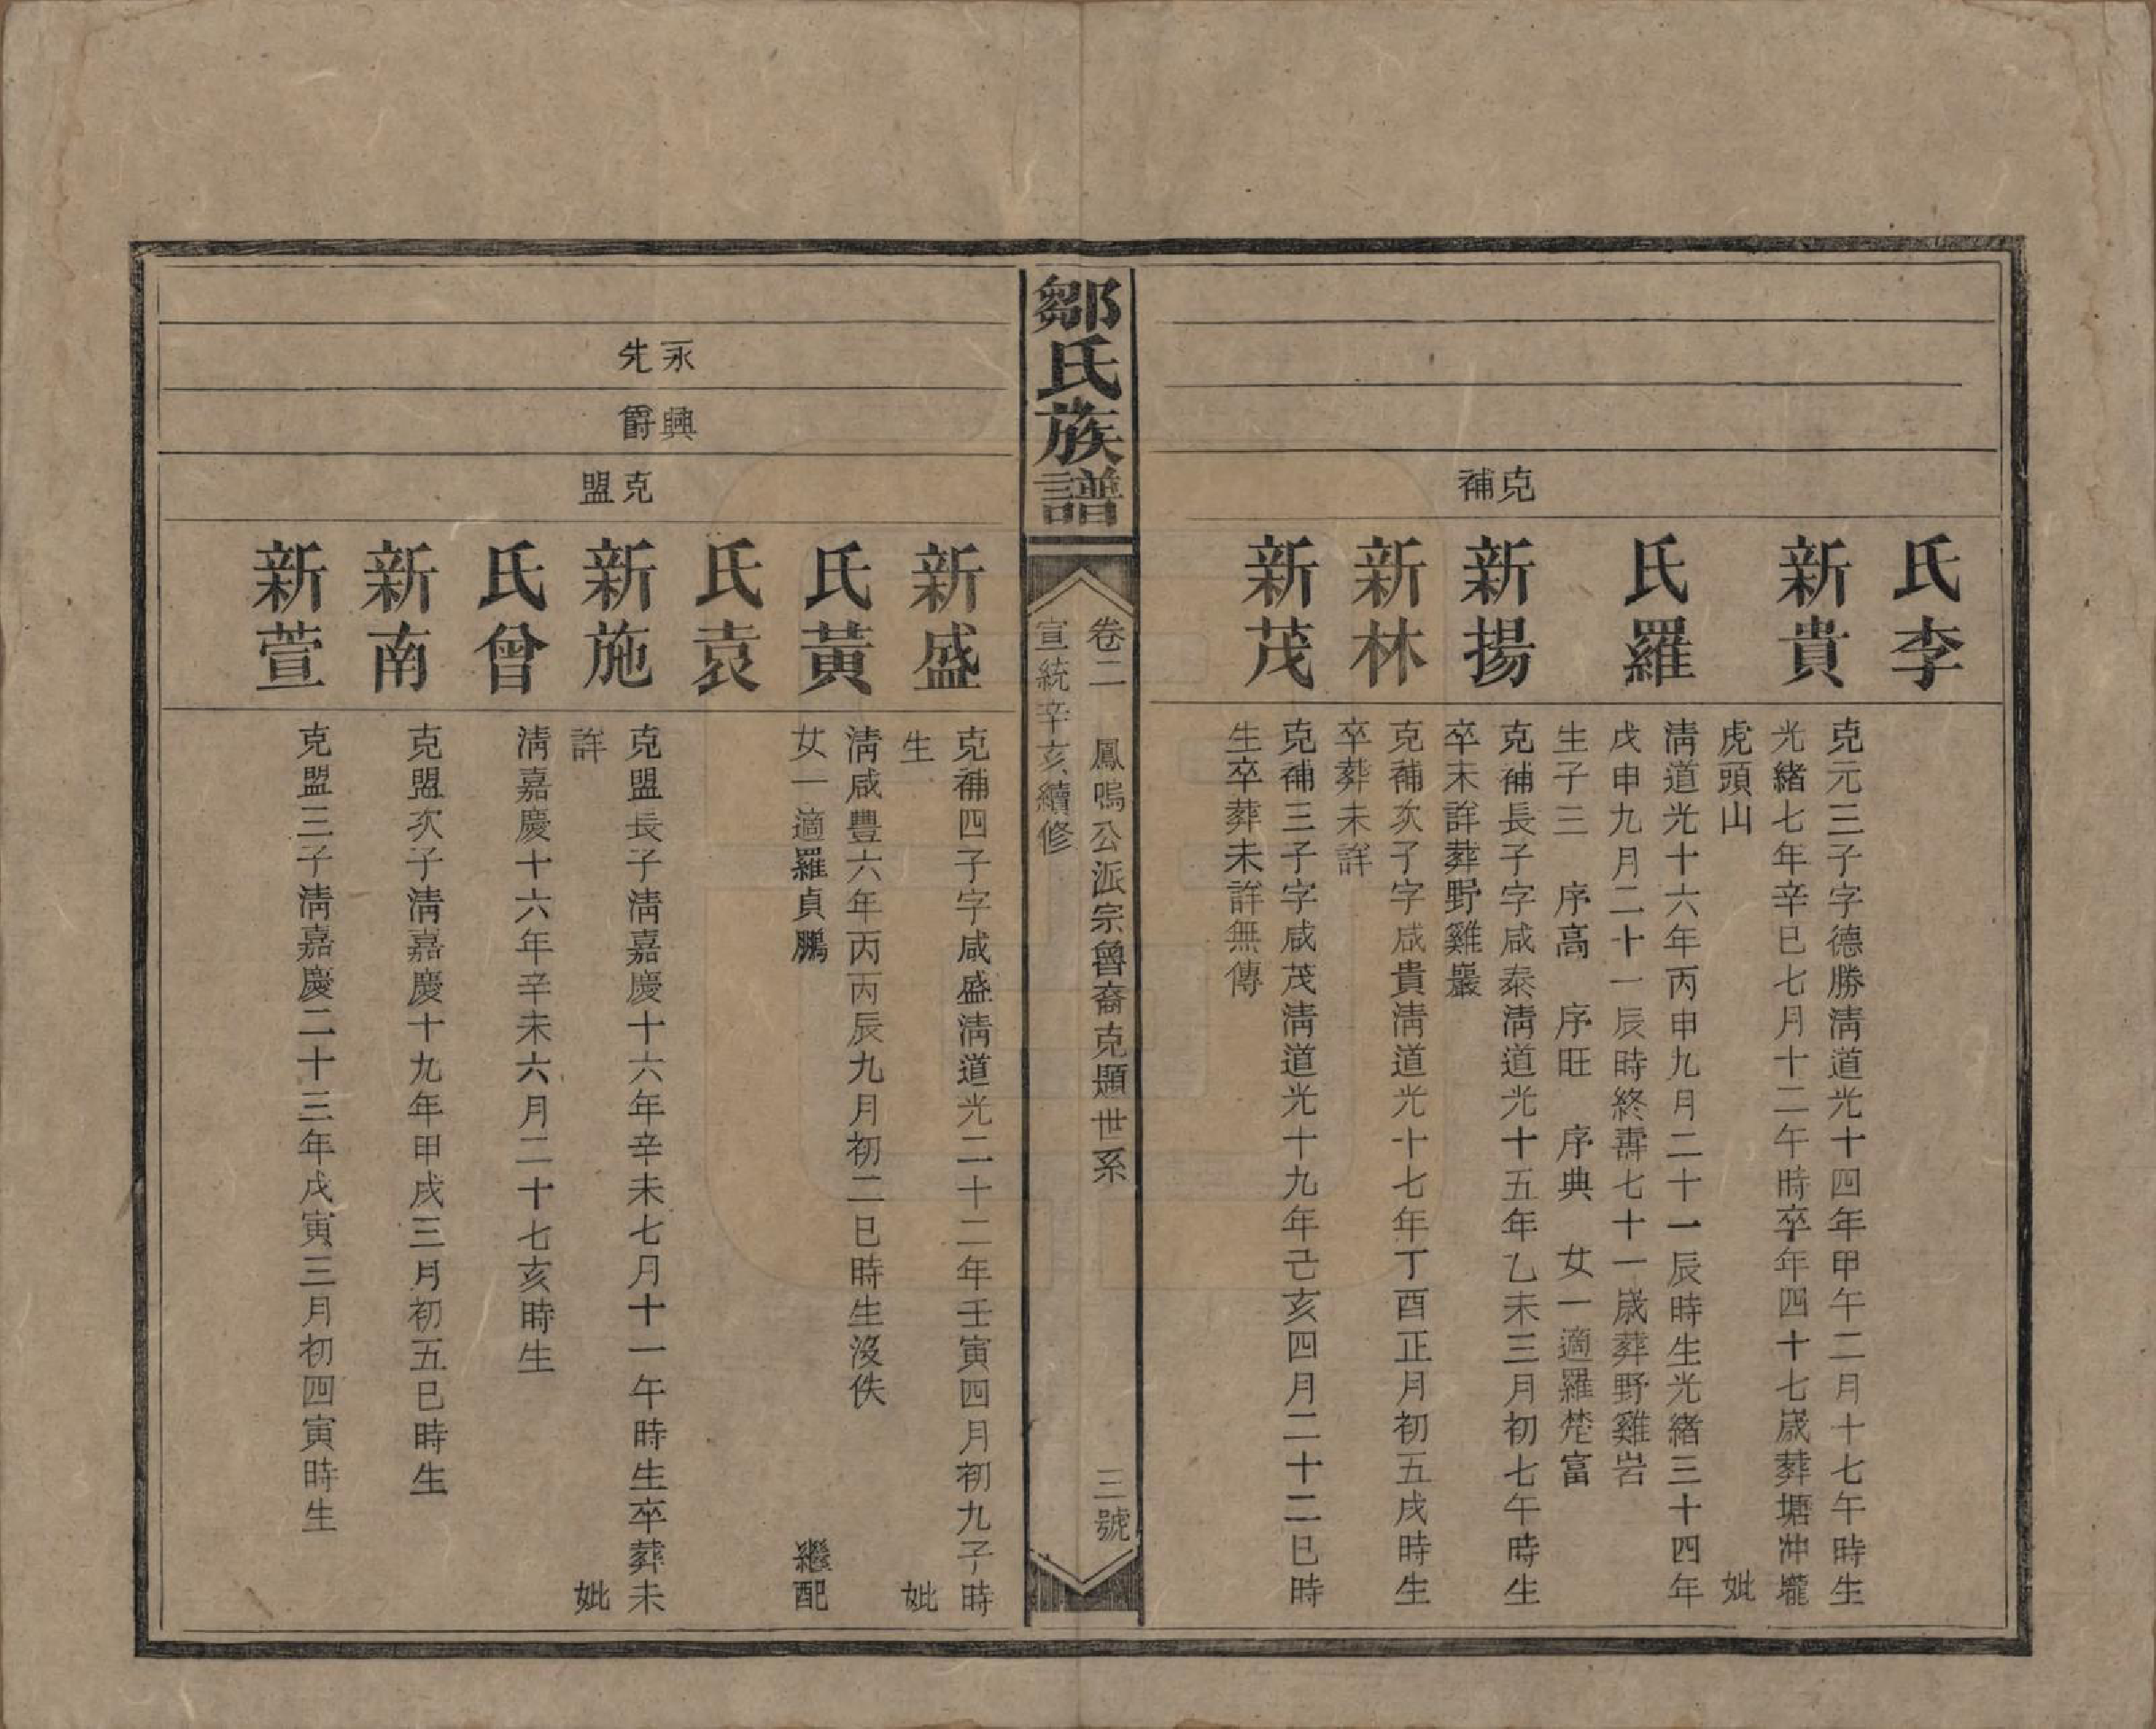 李氏
新貴
克元三子字德勝清道光十四年甲午二月十七午時生
光緒七年辛巳七月十二午時卒年四十七歲葬塘冲壠
虎頭山 妣
羅氏
清道光十六年丙申九月二十一辰時生光緒三十四年
戊申九月二十一辰時終壽七十一歲葬野雞岩
生子三 序高 序旺 序典 女一適羅楚富
克補
新揚
克補長子字咸泰清道光十五年乙未三月初七午時生
卒未詳葬野雞巖
新林
克補次子字咸貴清道光十七年丁酉正月初五戌時生
卒葬未詳
新茂
克補三子字咸茂清道光十九年己亥四月二十二巳時
生卒葬未詳無傳
鄒氏族譜
卷二 鳳鳴公派宗魯裔克題世系 三號
宣統辛亥續修
新盛
克補四子字咸盛清道光二十二年壬寅四月初九子時
生 妣
黃氏
清咸豐六年丙丙辰九月初二巳時生沒佚
女一適羅貞鵬 繼配
袁氏
永先
興爵
克盟
新施
克盟長子清嘉慶十六年辛未七月十一午時生卒葬未
詳 妣
曾氏
清嘉慶十六年辛未六月二十七亥時生
新南
克盟次子清嘉慶十九年甲戌三月初五巳時生
新萱
克盟三子清嘉慶二十三年戊寅三月初四寅時生